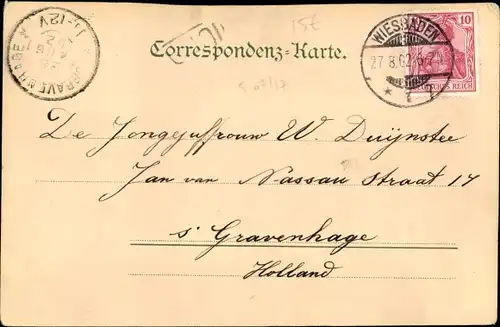 15€
Correspondenz-Karte.
WIESBADEN
27.8.02. 6-7N
* 7 *
10
REICH
'S GRAVENHAGE
11-12V
De Jongejuffrouw W. Duijnstee
Jan van Nassau straat 14
s' Gravenhage
Holland